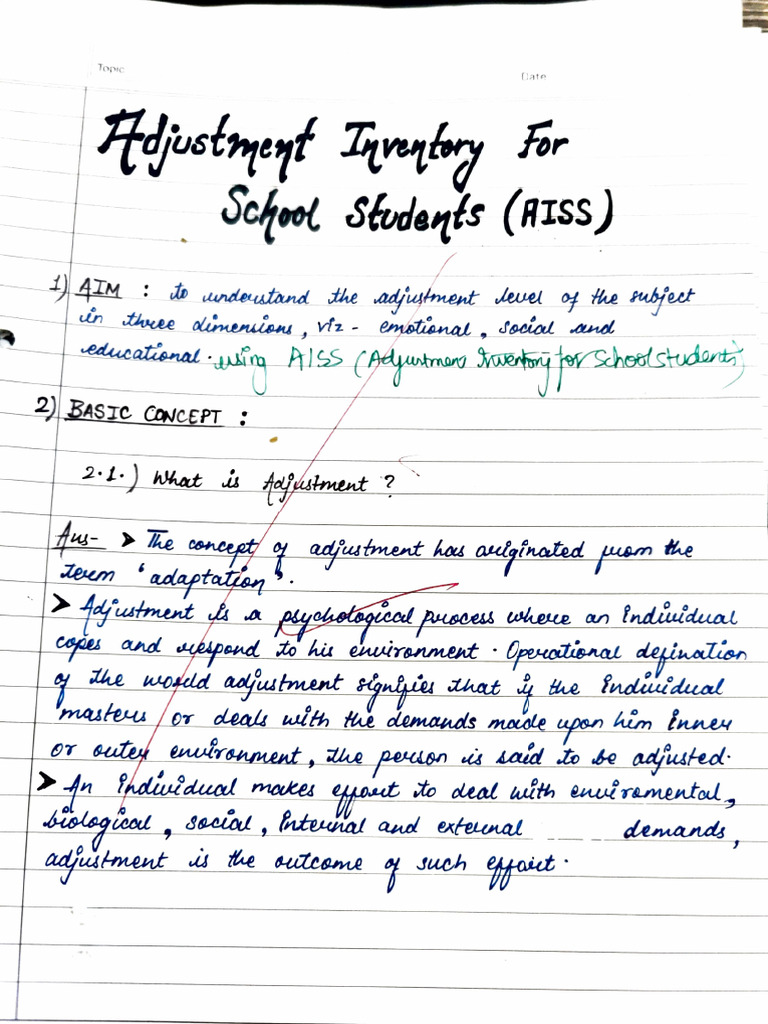 Topic
Date
Adjustment Inventory For
School Students (AISS)
1) AIM : to understand the adjustment level of the subject
in three dimensions, viz - emotional, social and
educational. using AISS (Adjustment Inventory for School students)
2) BASIC CONCEPT :
2.1.) What is Adjustment ?
Ans- ➤ The concept of adjustment has originated from the
term 'adaptation'.
➤ Adjustment is a psychological process where an individual
copes and respond to his environment. Operational defination
of the world adjustment signifies that if the individual
masters or deals with the demands made upon him inner
or outer environment, the person is said to be adjusted.
➤ An individual makes effort to deal with enviromental,
biological, social, internal and external demands,
adjustment is the outcome of such effort.